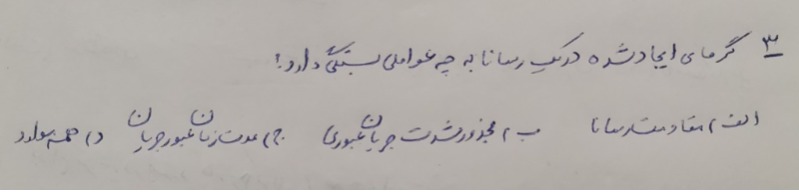 ۳ گرمای ایجاد شده در یک رسانا به چه عواملی بستگی دارد؟
الف) مقاومت رسانا ب) مجذور شدت جریان عبوری ج) مدت زمان عبور جریان د) همه موارد